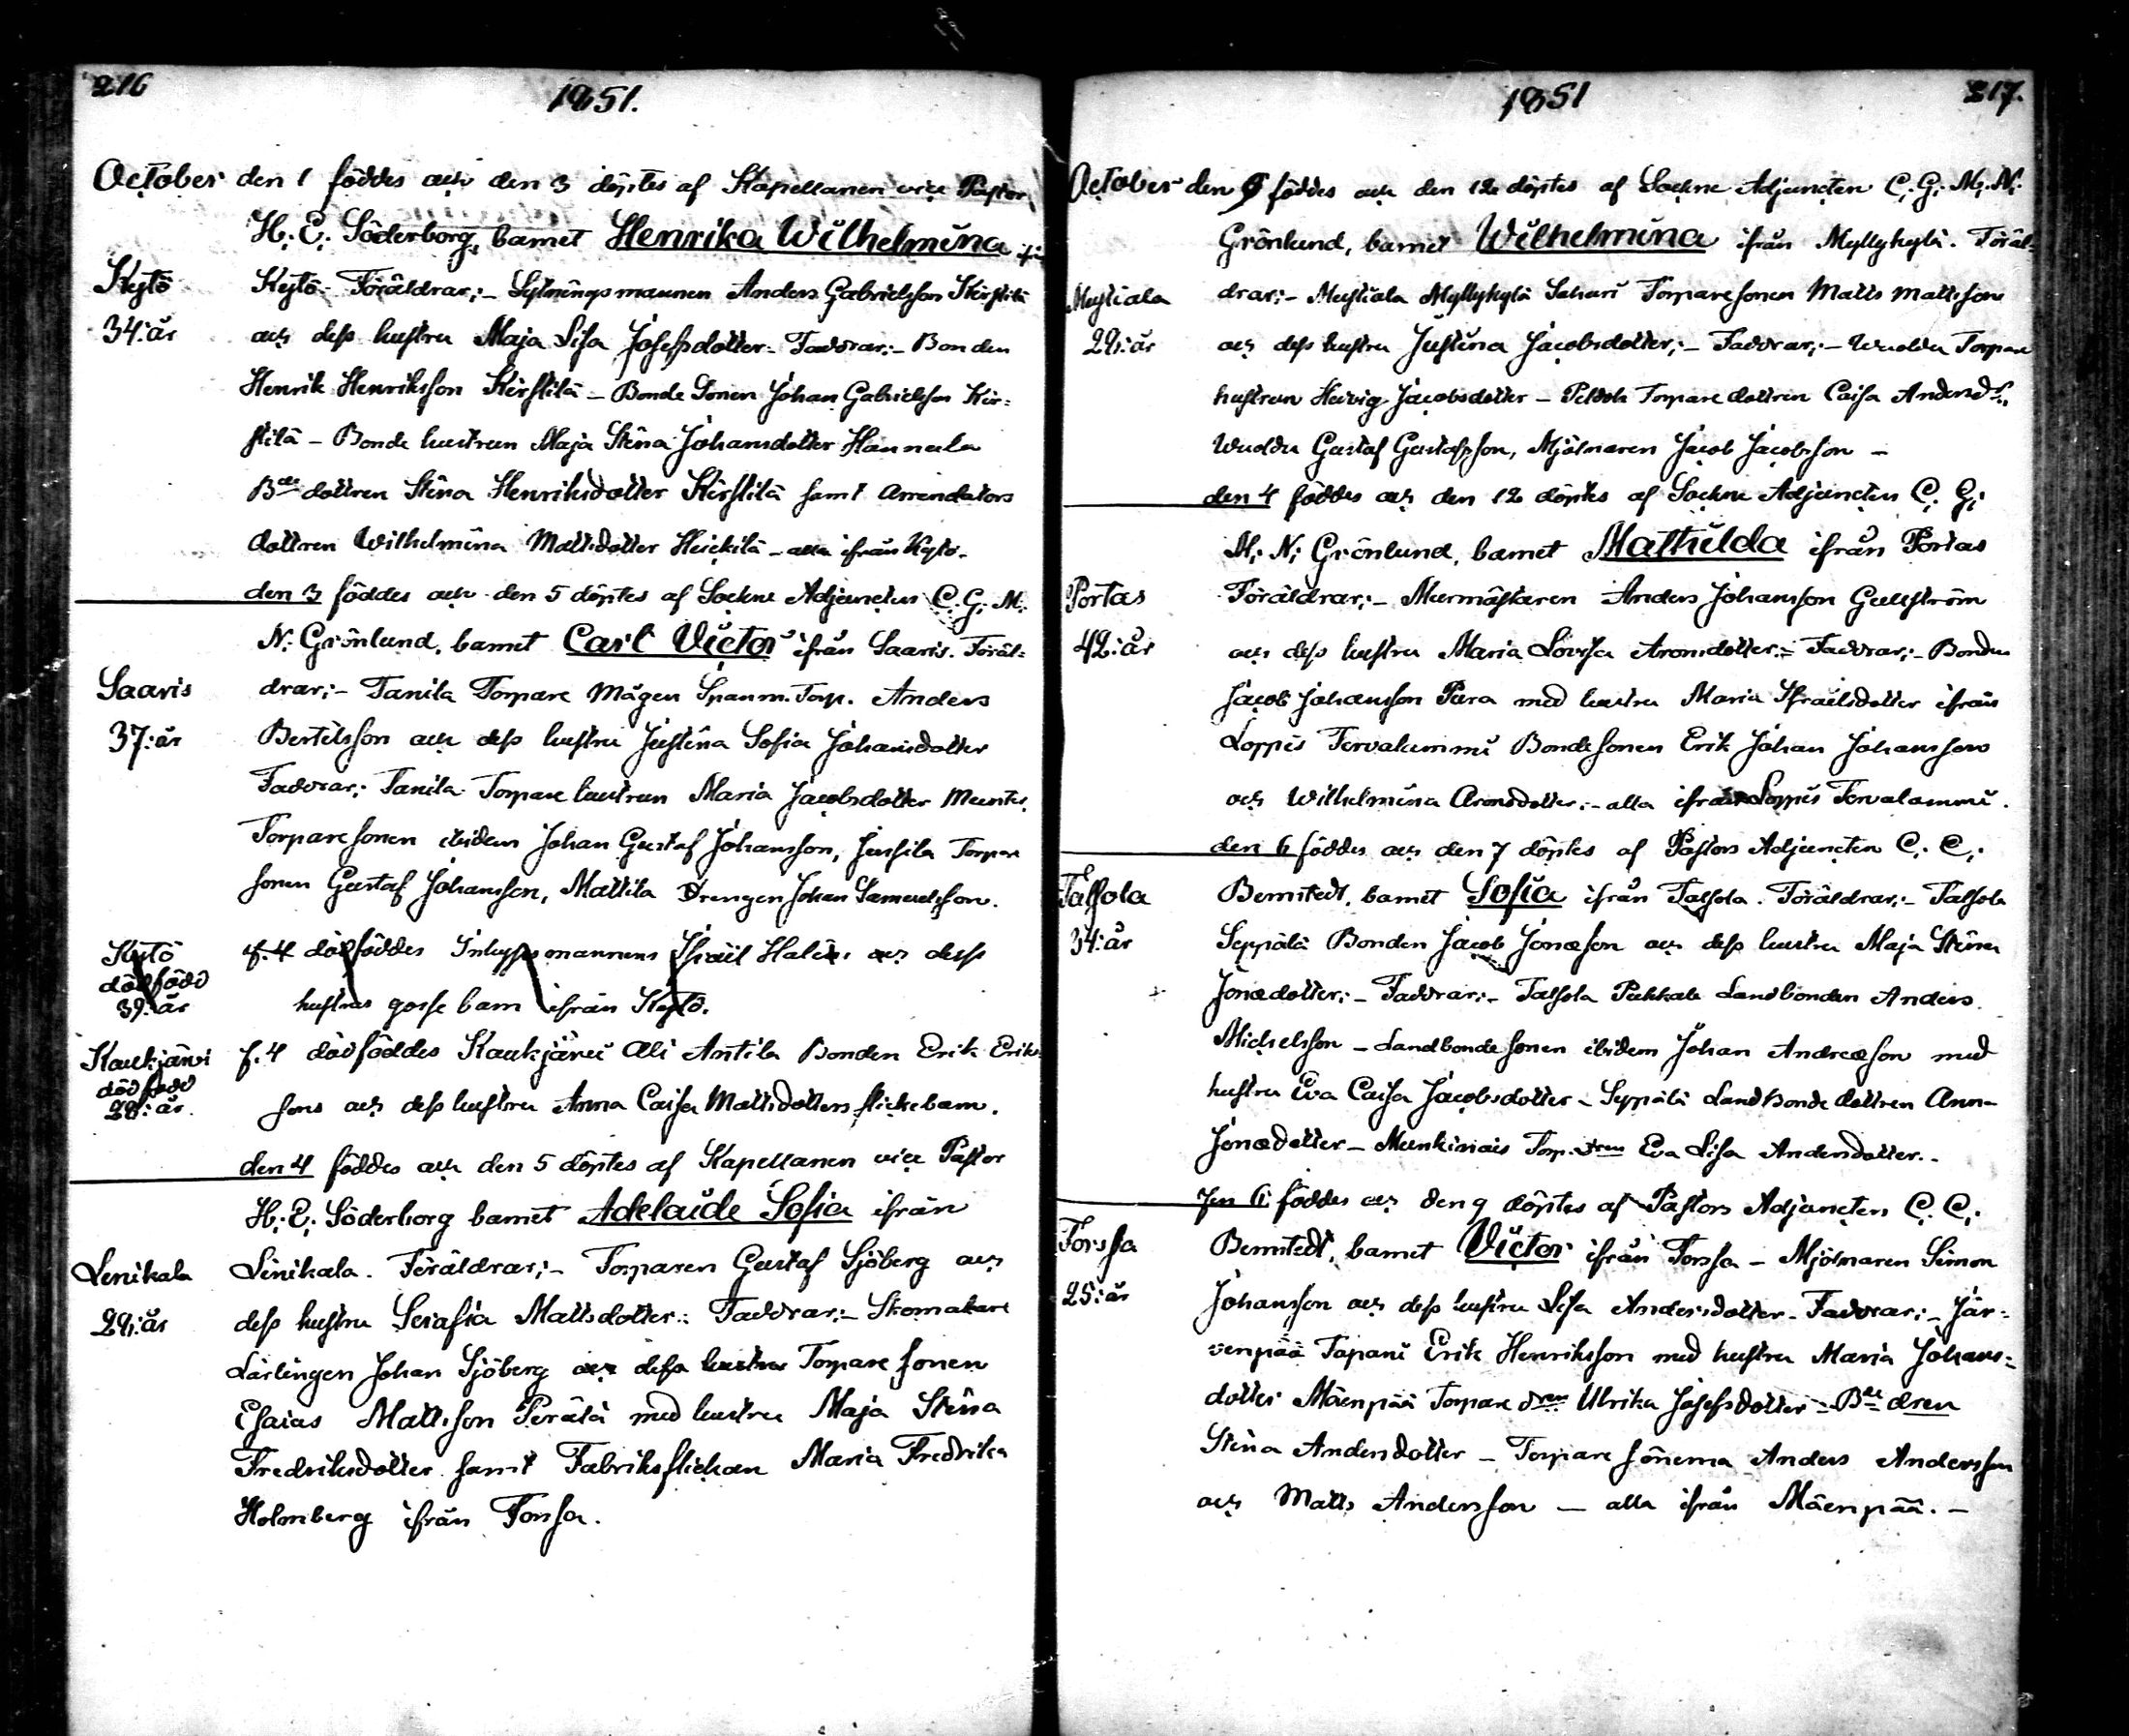 216
1851.
October den 1 föddes och den 3 döptes af Kapellanen vice Pastor
H. E. Söderborg, barnet Henrika Wilhelmina
Kytö Kytö. Föräldrar;- Sytningsmannen Anders Gabrielsson Kirstilä
34: år och dess hustru Maja Lisa Josefsdotter. Faddrar;- Bonden
Henrik Henriksson Kirstilä - Bonde Sonen Johan Gabrielsson Kir=
stilä - Bonde hustrun Maja Stina Johansdotter Hannula
Bde dottren Stina Henriksdotter Kirstilä samt Arrendators
dottren Wilhelmina Mattsdotter Heickilä - alla ifrån Kytö.
den 3 föddes och den 5 döptes af Sockne Adjuncten C. G. M.
N. Grönlund, barnet Carl Victor ifrån Saaris. Föräl=
Saaris drar;- Tanila Torpare Mågen Spanm. Torp. Anders
37: år Bertilsson och dess hustru Justina Sofia Johansdotter
Faddrar; Tanila Torpare hustrun Maria Jacobsdotter
Torpare sonen ibidem Johan Gustaf Johansson, Jussila Torpare
sonen Gustaf Johansson, Mattila Drengen Johan Samuelsson.
Kytö f. 4 dödföddes Inhyses mannens Israël och dess
dödfödd
39: år hustrus gosse barn ifrån Kytö.
Kaukjärvi f. 4 dödföddes Kaukjärvi Ali Antila Bonden Erik Eriks
dödfödd
28: år. sons och dess hustru Anna Caisa Mattsdotters flickebarn.
den 4 föddes och den 5 döptes af Kapellanen vice Pastor
H. E. Söderborg barnet Adelaide Sofia ifrån
Lenikala Linikala. Föräldrar;- Torparen Gustaf Sjöberg och
29: år dess hustru Serafia Mattsdotter: Faddrar;- Skomakare
Lärlingen Johan Sjöberg och dess hustru Torpare sonen
Esaias Mattsson Perälä med hustru Maja Stina
Fredriksdotter samt Fabriksflickan Maria Fredrika
Holmberg ifrån Forssa.
1851
217.
October den föddes och den 12 döptes af Sockne Adjuncten C. G. M. N.
Grönlund, barnet Wilhelmina ifrån Myllykylä. Föräl=
Mustiala drar;- Mustiala Myllykylä Sakari Torparesonen Matts Mattsson
29: år och dess hustru Justina Jacobsdotter;- Faddrar;- Torpare
hustrun Hedvig Jacobsdotter - Torpare dottren Caisa Andersdr,
Gustaf Gustafsson, Mjölnaren Jacob Jacobsson -
den 4 föddes och den 12 döptes af Sockne Adjuncten C. G.
M. N. Grönlund, barnet Mathilda ifrån Portas
Portas Föräldrar;- Murmästaren Anders Johansson Gullström
42: år och dess hustru Maria Lovisa Aronsdotter;- Faddrar;- Bonden
Jacob Johansson Pura med hustru Maria Israelsdotter ifrån
Loppis Tervalammi Bondesonen Erik Johan Johansson
och Wilhelmina Aronsdotter;- alla ifrån Loppis Tervalammi.
den 6 föddes och den 7 döptes af Pastors Adjuncten C. C.
Talsola Bernstedt, barnet Sofia ifrån Talsola. Föräldrar;- Talsola
34: år Seppälä Bonden Jacob Jonæson och dess hustru Maja Stina
Jonædotter;- Faddrar;- Talsola Pukkala Landbonden Anders
Michelsson - Landbonde sonen ibidem Johan Andreæson med
hustru Eva Caisa Jacobsdotter - Seppälä Landbonde dottren Anna
Jonædotter - Torp. dren Eva Lisa Andersdotter.-
Den 6 föddes och den 9 döptes af Pastors Adjuncten C. C.
Forssa Bernstedt, barnet Victor ifrån Forssa - Mjölnaren Simon
25: år Johansson och dess hustru Lisa Andersdotter - Faddrar;- Jär=
venpää Tapani Erik Henriksson med hustru Maria Johans=
dotter Mäenpää Torpare dren Ulrika Josefsdotter - Bde dren
Stina Andersdotter - Torpare sönerna Anders Andersson
och Matts Andersson - alla ifrån Mäenpää. -